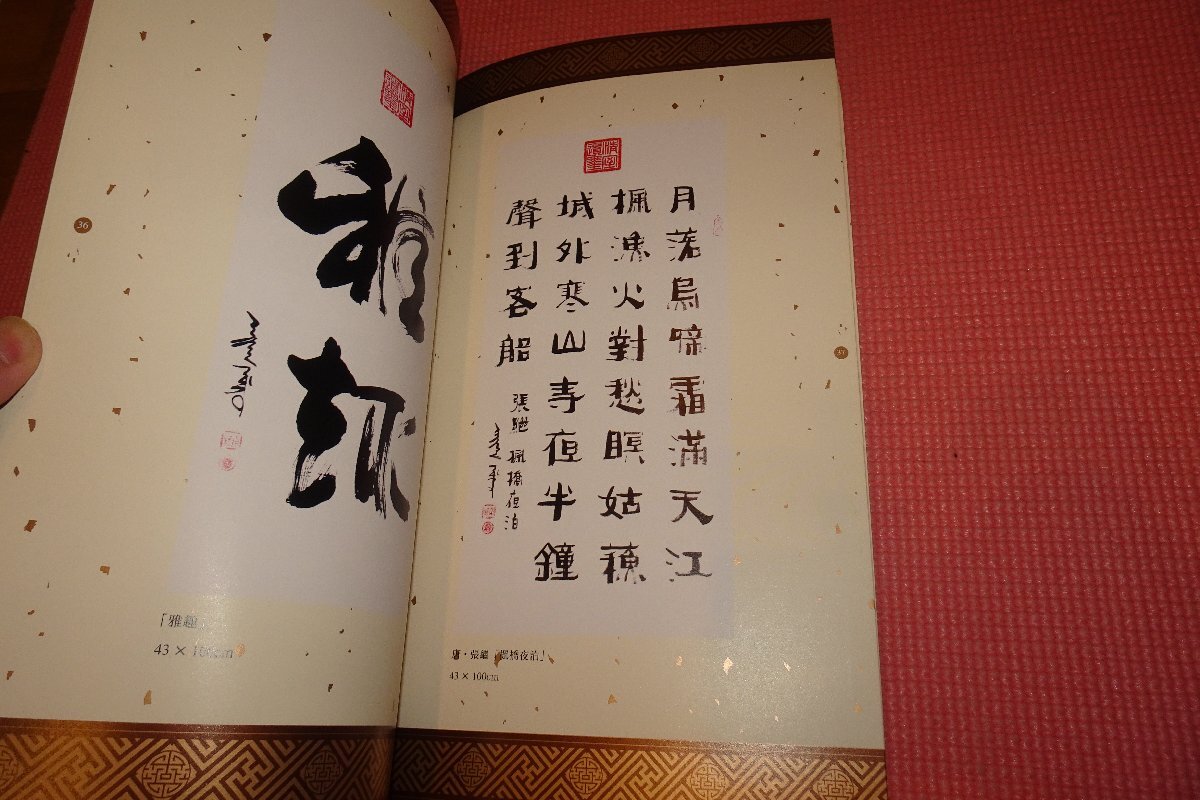 36
雅趣
「雅趣」
43 × 100cm
月落烏啼霜滿天江
楓漁火對愁眠姑蘇
城外寒山寺夜半鐘
聲到客船
張繼 楓橋夜泊
37
唐・張繼「楓橋夜泊」
43 × 100cm